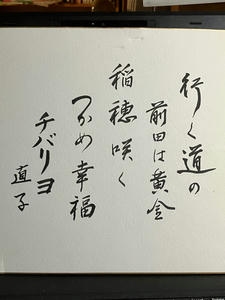 行く道の
前田は黄金
稲穂咲く
つかめ幸福
チバリヨ
直子